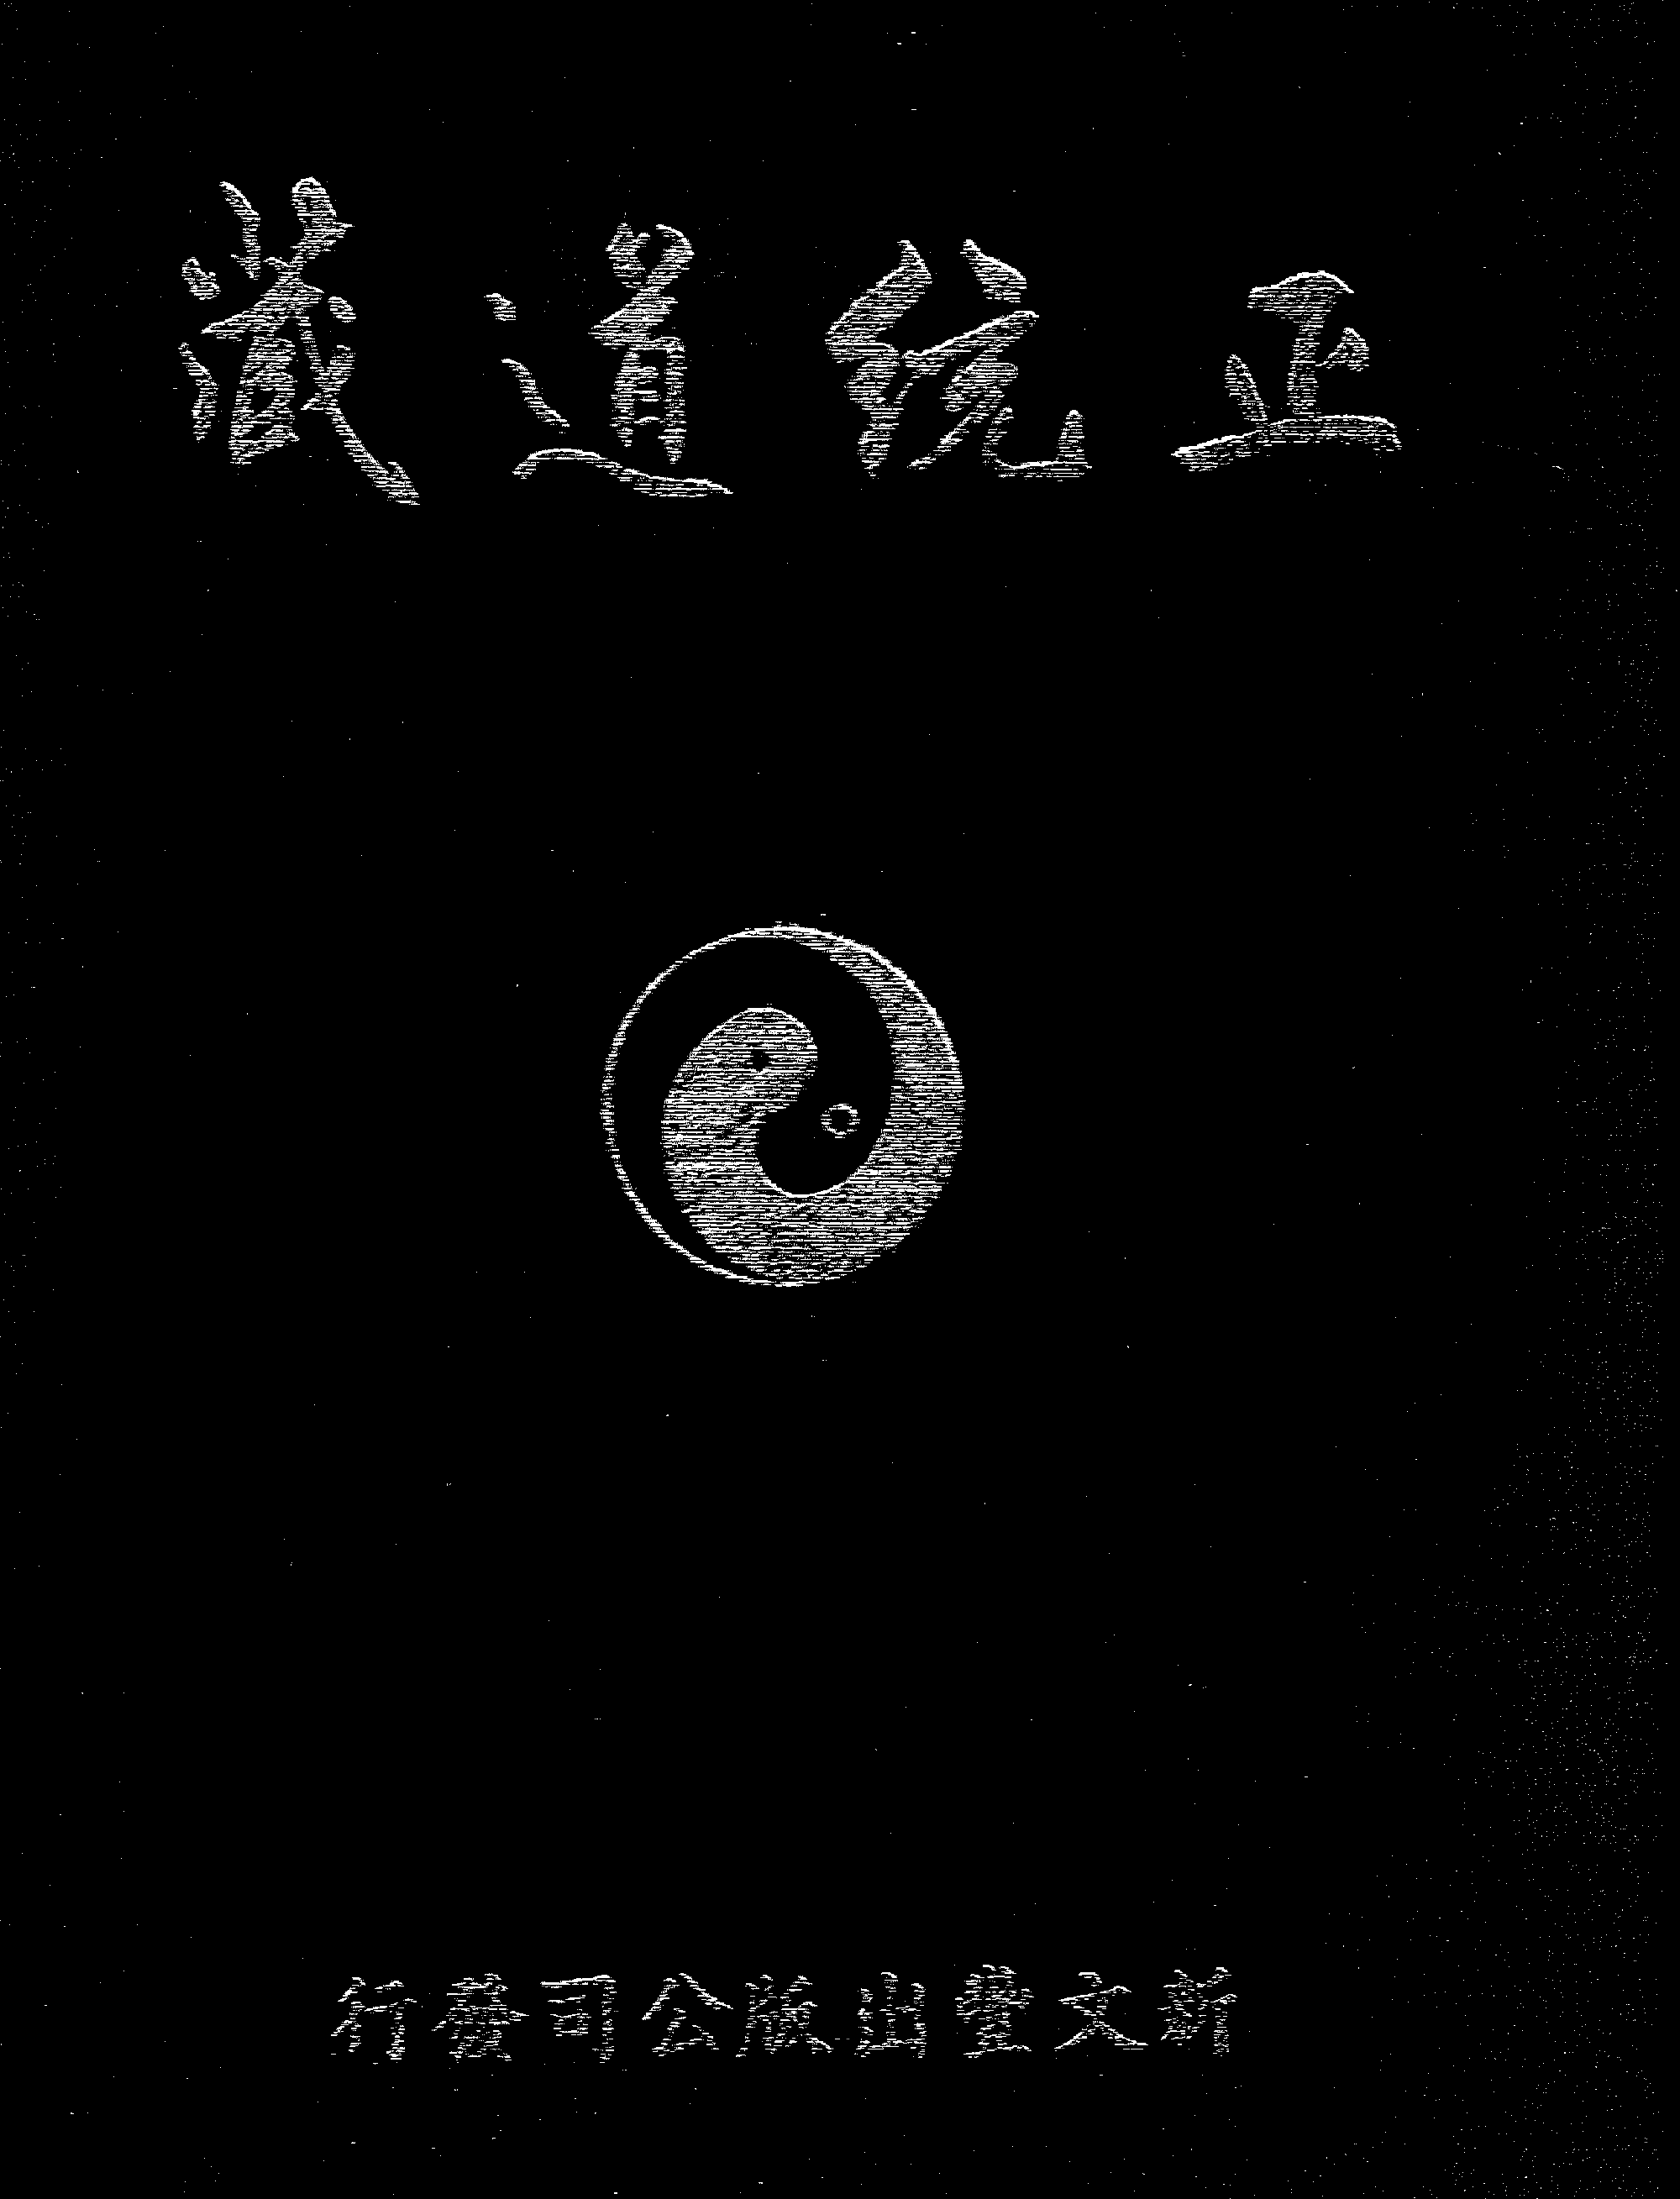 正統道藏
新文豐出版公司發行